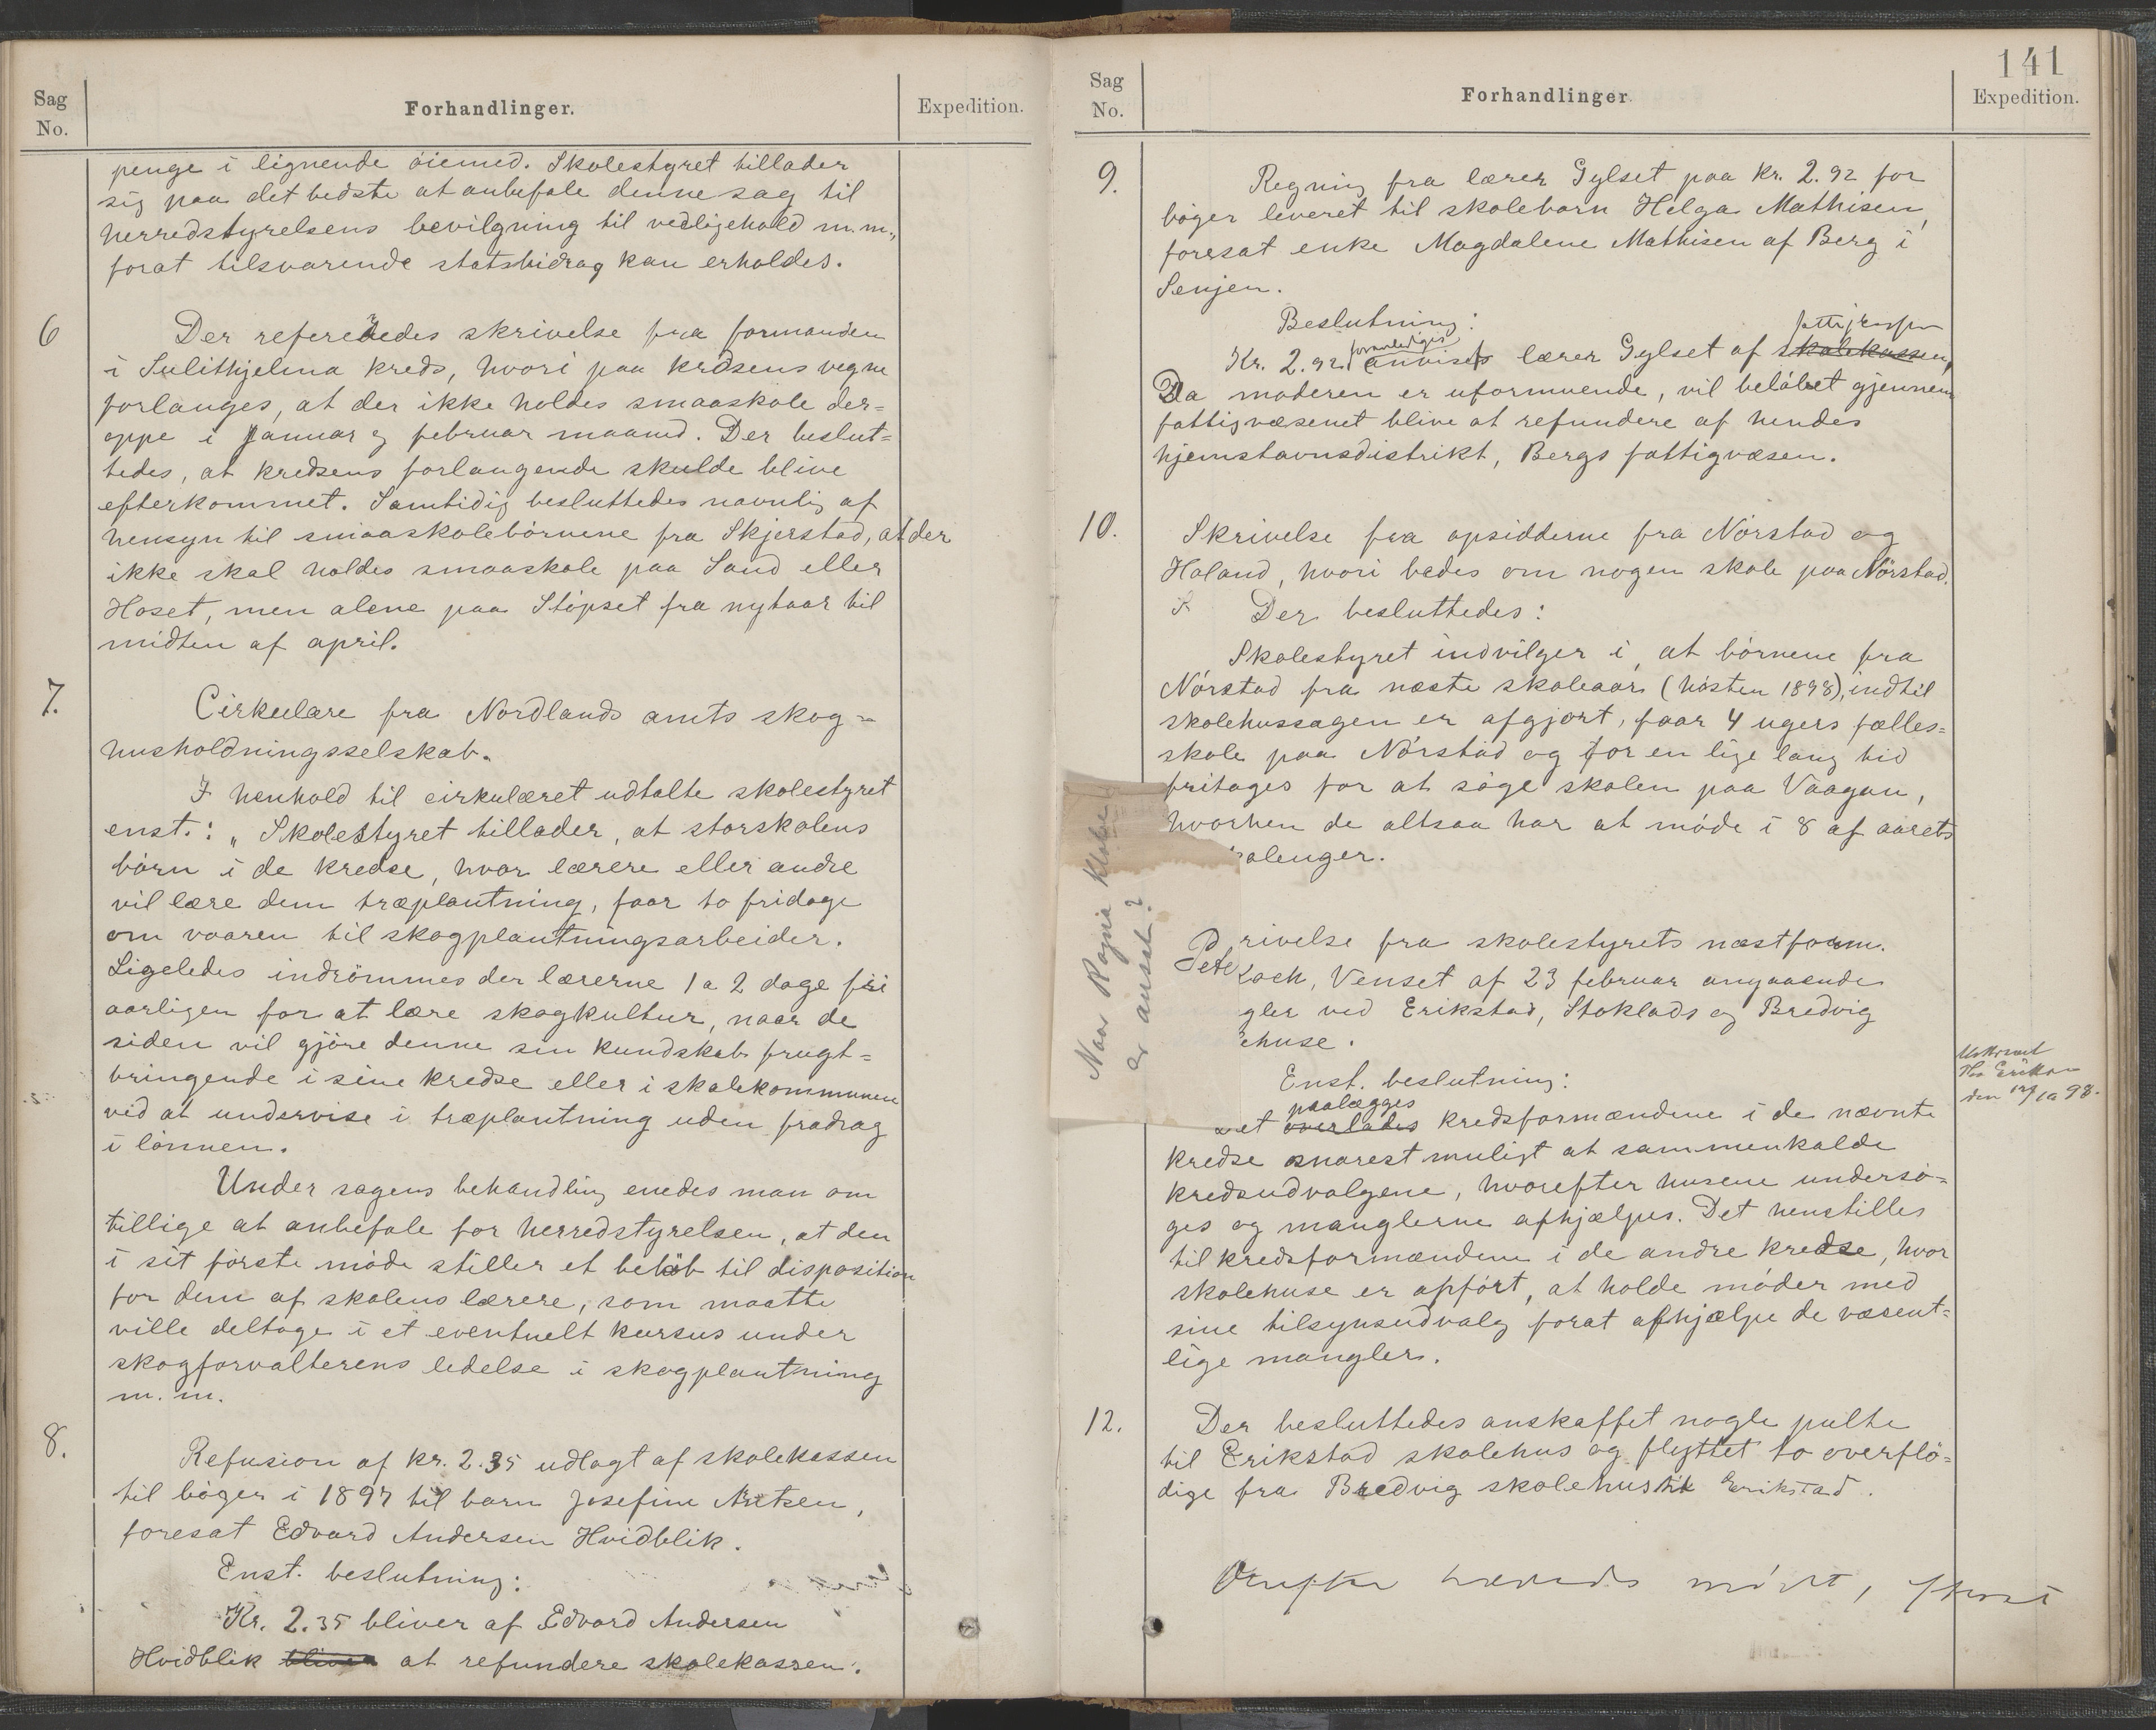 Sag
No.
Forhandlinger.
Expedition.
penge i lignende öiemed. Skolestyret tillader
sig paa det bedste at anbefale denne sag til
herredstyrelsens bevilgning til vedligehold m.m.,
forat tilsvarende statsbidrag kan erholdes.
6
Der refereredes skrivelse fra formanden
i Sulithjelma kreds, hvori paa kredsens vegne
forlanges, at der ikke holdes smaaskole der=
oppe i Januar og februar maaned. Der beslut=
tedes, at kredsens forlangende skulde blive
efterkommet. Samtidig besluttedes navnlig af
hensyn til smaaskolebörnene fra Skjerstad, at der
ikke skal holdes smaaskole paa Sand eller
Hoset, men alene paa Stöpset fra nytaar til
midten af april.
7.
Cirkulære fra Nordlands amts skog=
husholdningsselskab.
I henhold til cirkulæret udtalte skolestyret
enst.: „Skolestyret tillader, at storskolens
börn i de kredse, hvor lærere eller andre
vil lære dem træplantning, faar to fridage
om vaaren til skogplantningsarbeider.
Ligeledes indrömmes der lærerne 1 a 2 dage fri
aarligen for at lære skogkultur, naar de
siden vil gjöre denne sin kundskab frugt=
bringende i sine kredse eller i skolekommunen
ved at undervise i træplantning uden fradrag
i lönnen.
Under sagens behandling enedes man om
tillige at anbefale for herredstyrelsen, at den
i sit förste möde stiller et belöb til disposition
for dem af skolens lærere, som maatte
ville deltage i et eventuelt kursus under
skogforvalterens ledelse i skogplantning
m. m.
8.
Refusion af kr. 2.35 udlagt af skolekassen
til böger i 1897 til barn Josefine Arntsen,
foresat Edvard Andersen Hvidblik.
Enst. beslutning:
Kr. 2.35 bliver af Edvard Andersen
Hvidblik bliver at refundere skolekassen.
141
Sag
No.
Forhandlinger
Expedition.
9.
Regning fra lærer Gylset paa kr. 2.92 for
böger leveret til skolebarn Helga Mathisen,
foresat enke Magdalene Mathisen af Berg i
Senjen.
Beslutning:
forventes
Kr. 2.92 anvises lærer Gylset af skolekassen,
Da moderen er uformuende, vil belöbet gjennem
fattigvæsenet blive at refundere af hendes
hjemstavnsdistrikt, Bergs fattigvæsen.
10.
Skrivelse fra opsidderne fra Nörstad og
Haland, hvori bedes om nogen skole paa Nörstad.
Der besluttedes:
Skolestyret indvilger i, at börnene fra
Nörstad fra næste skoleaar (hösten 1898), indtil
skolehussagen er afgjort, faar 4 ugers fælles=
skole paa Nörstad og for en lige lang tid
fritages for at söge skolen paa Vaagan,
hvorhen de altsaa har at möde i 8 af aarets
kolenger.
Naar Ragna
er ansat?
Pete
rivelse fra skolestyrets næstform.
Koch, Venset af 23 februar angaaende
gler ved Erikstad, Stoklads og Bredvig
ehuse.
Enst. beslutning:
paalægges
et overlades kredsformændene i de nævnte
kredse snarest muligt at sammenkalde
kredsudvalgene, hvorefter husene undersö=
ges og manglerne afhjælpes. Det henstilles
til kredsformændene i de andre kredse, hvor
skolehuse er opfört, at holde möder med
sine tilsynsudvalg forat afhjælpe de væsent=
lige mangler.
den 12/10 98.
12.
Der besluttedes anskaffet nogle pulte
til Erikstad skolehus og flyttet to overflö=
dige fra Bredvig skolehus til Erikstad.
hævedes mödet,